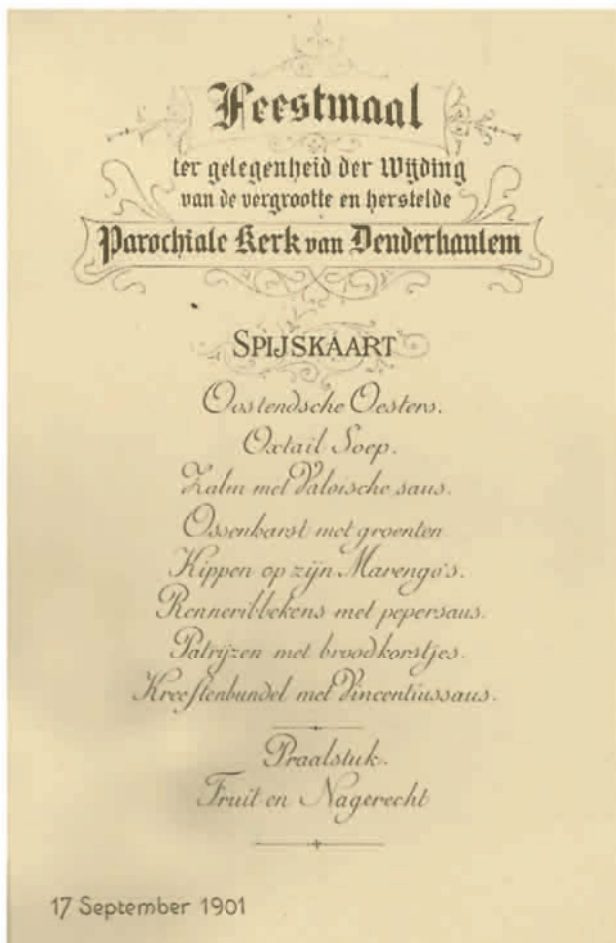 Feestmaal
ter gelegenheid der Wijding
van de vergroote en herstelde
Parochiale Kerk van Denderhautem
SPIJSKAART
Oostendsche Oesters.
Oxtail Soep.
Zalm met Valoische saus.
Ossenharst met groenten
Kippen op zijn Marengo's.
Renneribbekens met pepersaus.
Patrijzen met broodkorstjes.
Kreeftenbundel met Vincentiussaus.
Praalstuk.
Fruit en Nagerecht
17 September 1901